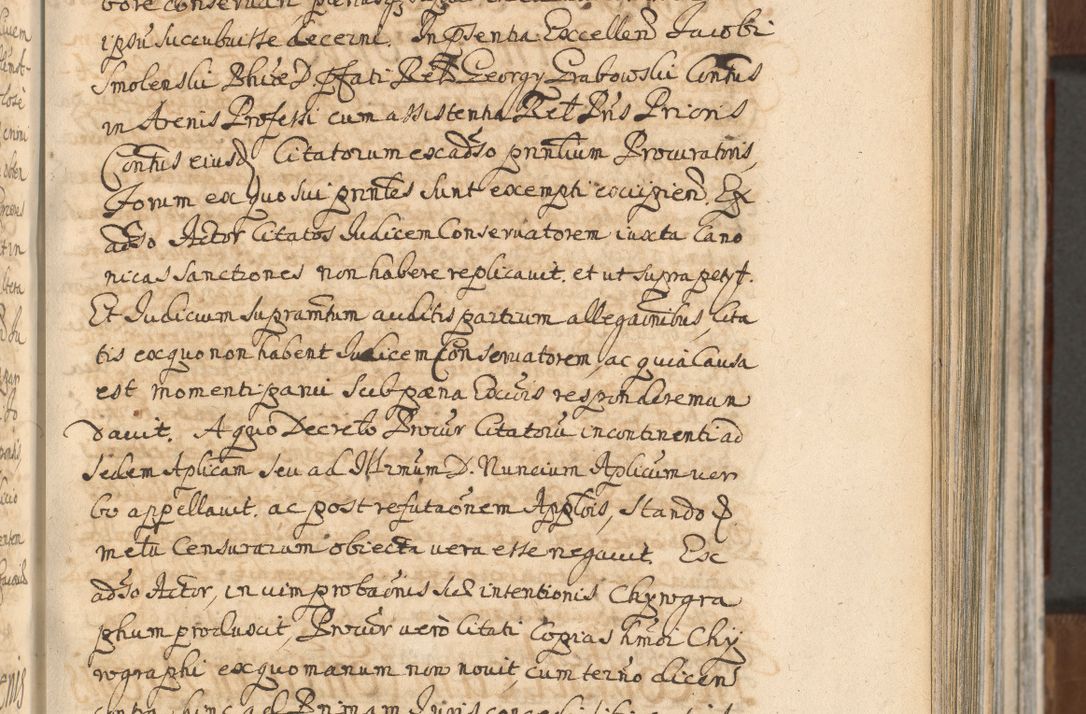 ipsū succubuisse decerni. In pſentia Excellen Jacobi
Smolenski Phiae D. pſati Rel Georgy Grabowski Contus
in Arenis Professi cum assistentia Rel Pris Prioris
Contus eiusd Citatorum ex adso prntium Procuratoris,
Forum ex quo sui prntes sunt exempti excipien. Ex
adso Actor Citatos Judicem Conservatorem iuxta Cano
nicas Sanctiones non habere replicavit. et ut supra petyt.
Et Judicium supramtum auditis partium allegaōnibus, Cita
tis ex quo non habent Judicem Conservatorem, ac quia Causa
est momenti parvi sub pœna Excōis respondere man
davit. A quo Decreto Procur Citatorū incontinenti ad
Sedem Aplicam seu ad Illrmum D. Nuncium Aplicum ver
bo appellavit. ac post refutaōnem Applōis, stando
metu Censurarum obiecta vera esse negavit. Ex
adso Actor, in vim probaōnis suæ intentionis Chyrogra
phum produxit, Procur vero Citati Copias hmōi Chy
rographi ex quo manum non novit, cum ternō dicen
contra hinc ad Primam Juris